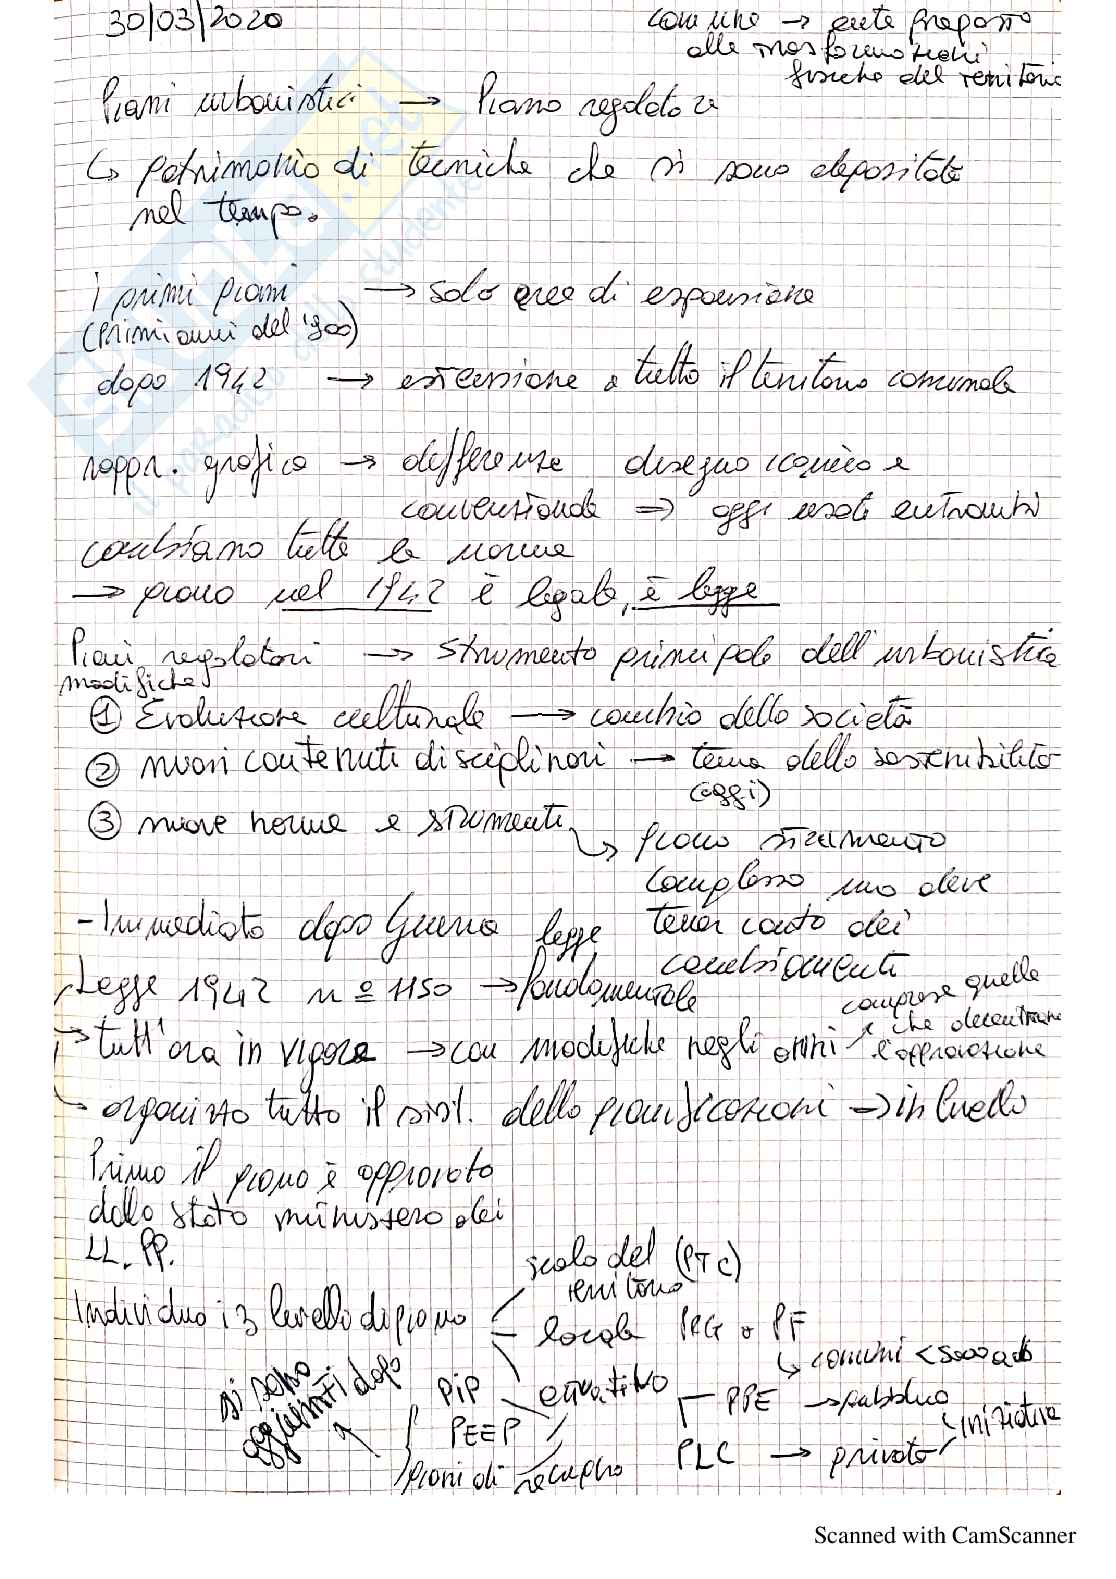 30/03/2020
comune → ente preposto
alle trasformazioni
fisiche del territorio
Piani urbanistici → Piano regolatore
↳ patrimonio di tecniche che si sono depositate
nel tempo.
i primi piani → solo aree di espansione
(primi anni del '900)
dopo 1942 → estensione a tutto il territorio comunale
rappr. grafica → differenze disegno iconico e
convenzionale => oggi usati entrambi
cambiano tutte le norme
→ piano nel 1942 è legale, è legge
Piani regolatori → strumento principale dell'urbanistica
modifiche
① Evoluzione culturale → cambio della società
② nuovi contenuti disciplinari → tema della sostenibilità
(oggi)
③ nuove norme e strumenti
↳ piano strumento
complesso ma deve
tener conto dei
cambiamenti
- Immediato dopo Guerra legge
Legge 1942 nº 1150 → fondamentale
→ tutt'ora in vigore → con modifiche negli anni
comprese quelle
che decentrano
l'approvazione
→ organizza tutto il sist. della pianificazioni → in livello
Prima il piano è approvato
dallo stato ministero dei
LL. PP.
Individua i 3 livello di piano
scala del (PTC)
territorio
locale PRG o PF
↳ comuni <5000 ab
attuativo
PPE → pubblico
PLC → privato
iniziativa
PIP
PEEP
piani di recupero
si sono
aggiunti dopo
Scanned with CamScanner